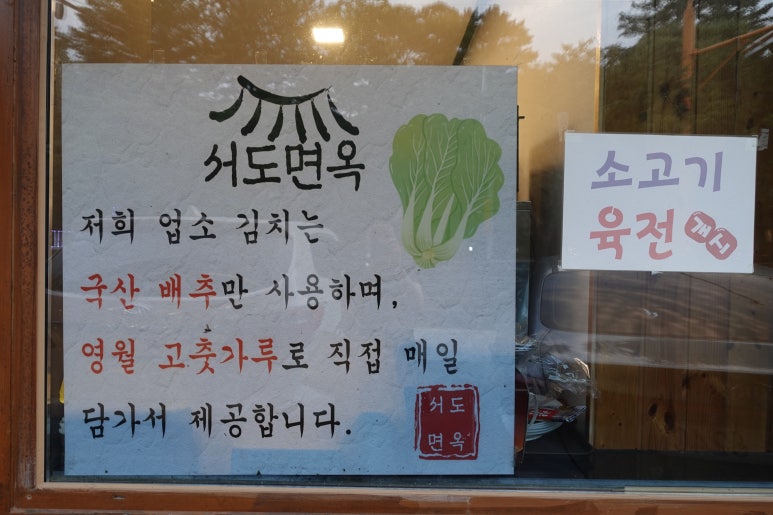 서도면옥
저희 업소 김치는
국산 배추만 사용하며,
영월 고춧가루로 직접 매일
담가서 제공합니다.
서도
면옥
소고기
육전
개시